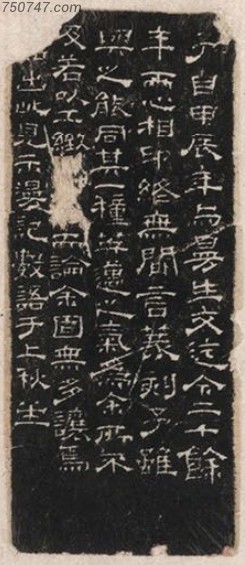 750747.com
予自甲辰年与曼生交迄今二十餘
年兩心相印終無間言篆刻予雖
與之能同其一種英邁之氣為余所不
及若以工緻而論余固無多讓焉
出此見示漫記數語于上秋堂